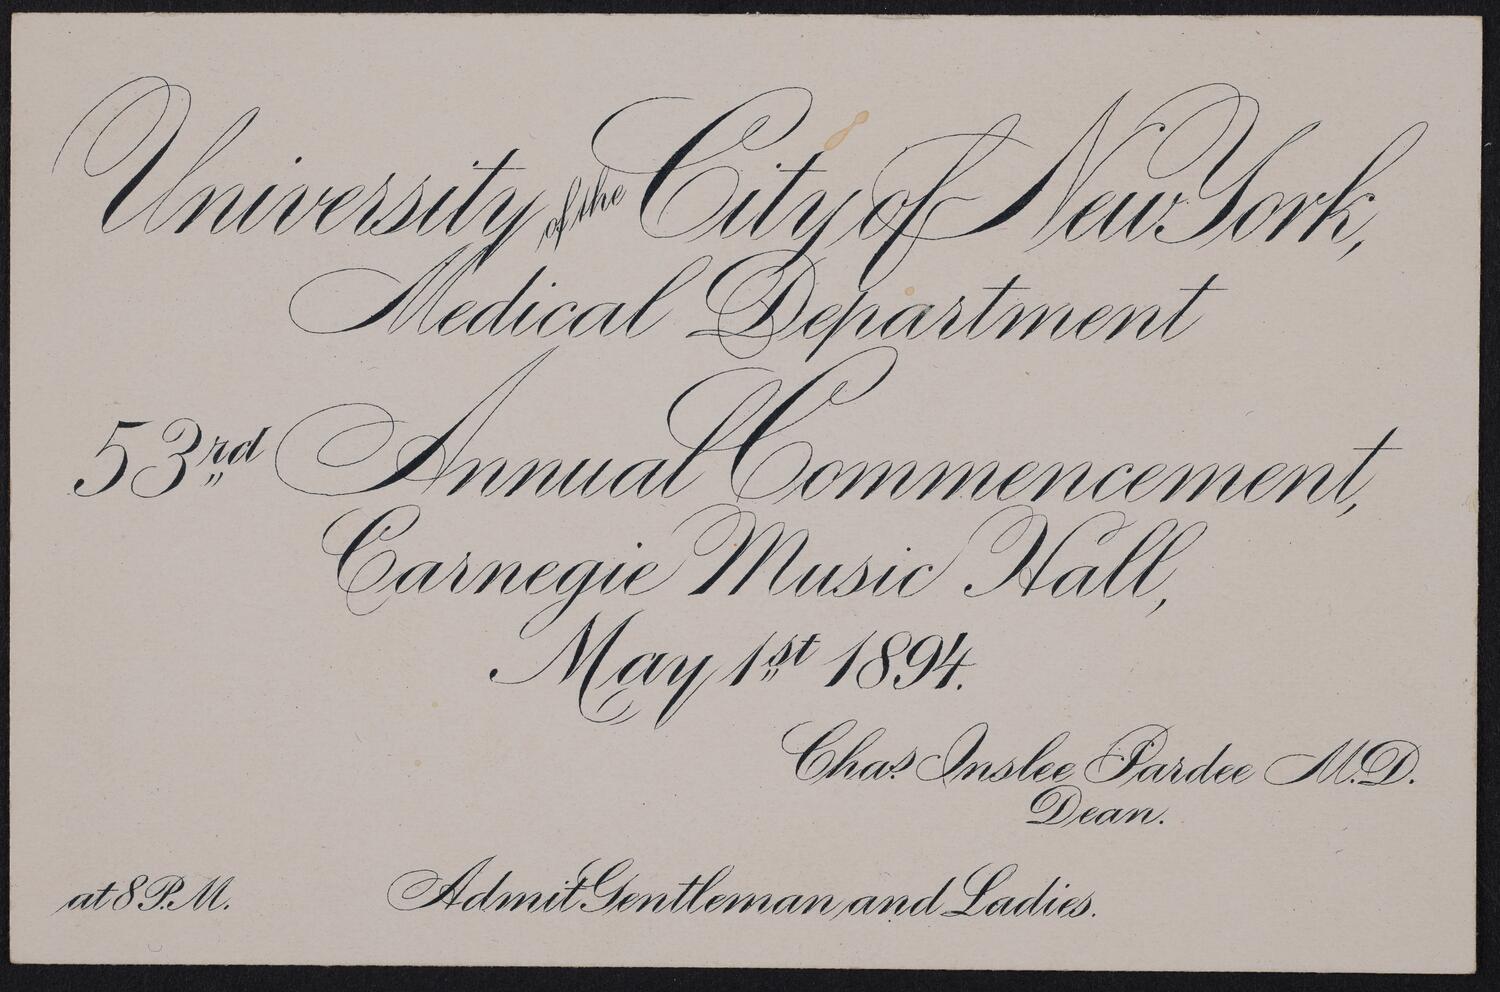 University of the City of New York,
Medical Department
53rd Annual Commencement,
Carnegie Music Hall,
May 1st 1894.
Chas. Inslee Pardee M.D.
Dean.
at 8 P.M. Admit Gentleman and Ladies.